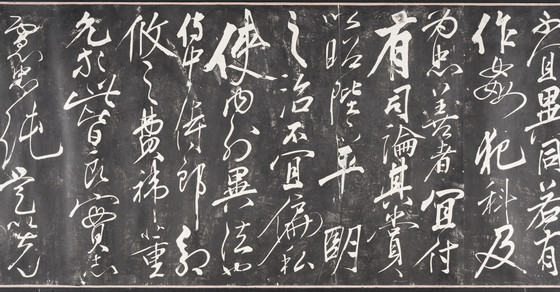 不宜異同若有
作奸犯科及
為忠善者宜付
有司論其賞
以昭陛下平明
之治不宜偏私
使內外異法也
侍中侍郎郭
攸之費禕董
允等此皆良實志
慮忠純是以先